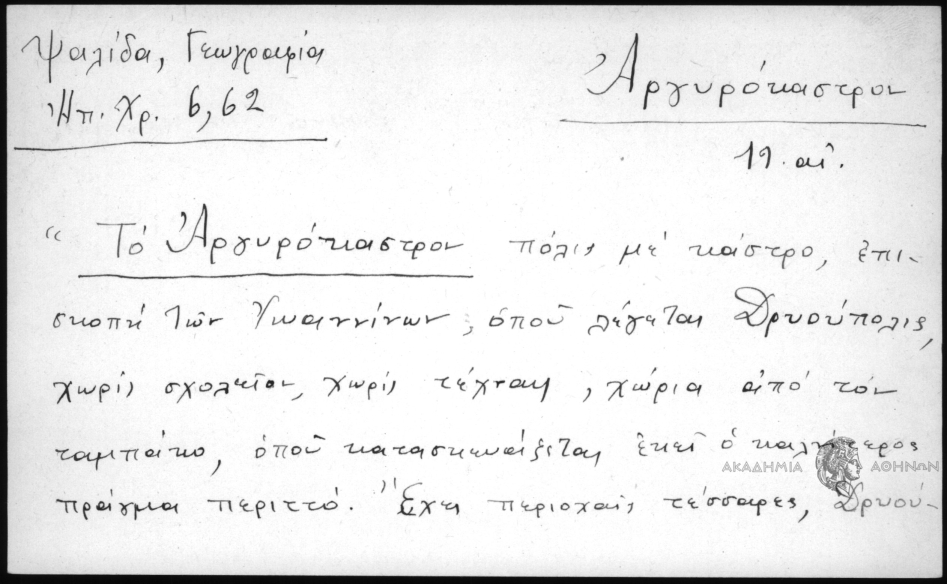 Ψαλίδα, Γεωγραφία
Ἠπ. Χρ. 6,62
Ἀργυρόκαστρον
19. αἰ.
“ Τό Ἀργυρόκαστρον πόλις μέ κάστρο, ἐπι-
σκοπή τῶν Ἰωαννίνων, ὁποῦ λέγεται Δρυούπολις,
χωρίς σχολεῖον, χωρίς τέχναις, χώρια ἀπό τόν
ταμπάκο, ὁποῦ κατασκευάζεται ἐκεῖ ὁ καλήτερος
ΑΚΑΔΗΜΙΑ ΑΘΗΝΩΝ
πρᾶγμα περιττό. Ἔχει περιοχαίς τέσσαρες, Δρυού-